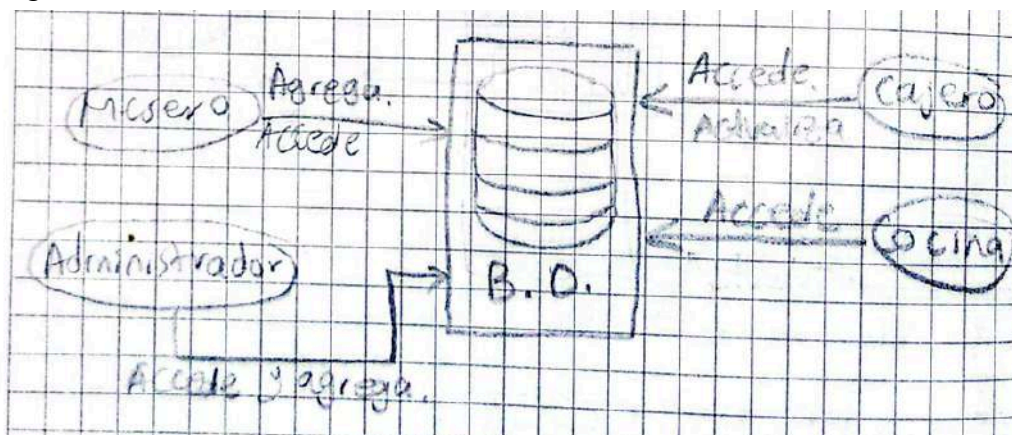 Mesero
Agrega.
Accede
Accede.
Actualiza
Cajero
Accede
Cocina
Administrador
B.D.
Accede y agrega.